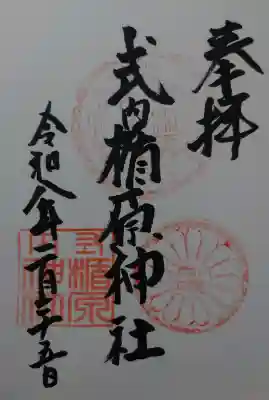 奉拝
式内楯原神社
令和八年二月二十五日